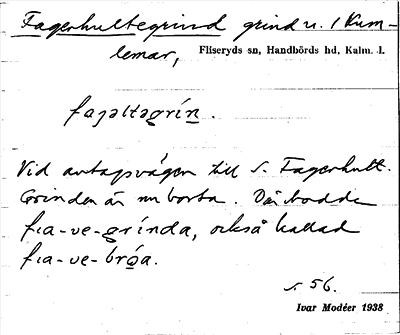 Fagerhultegrind grind n. / Kum-
lemar, Fliseryds sn, Handbörds hd, Kalm. l.
fagəltəgrín.
Vid avtagsvägen till S. Fagerhult.
Grinden är nu borta. Där bodde
fıa-ve-grínda, också kallad
fıa-ve-bróa.
S 56.
Ivar Modéer 1938